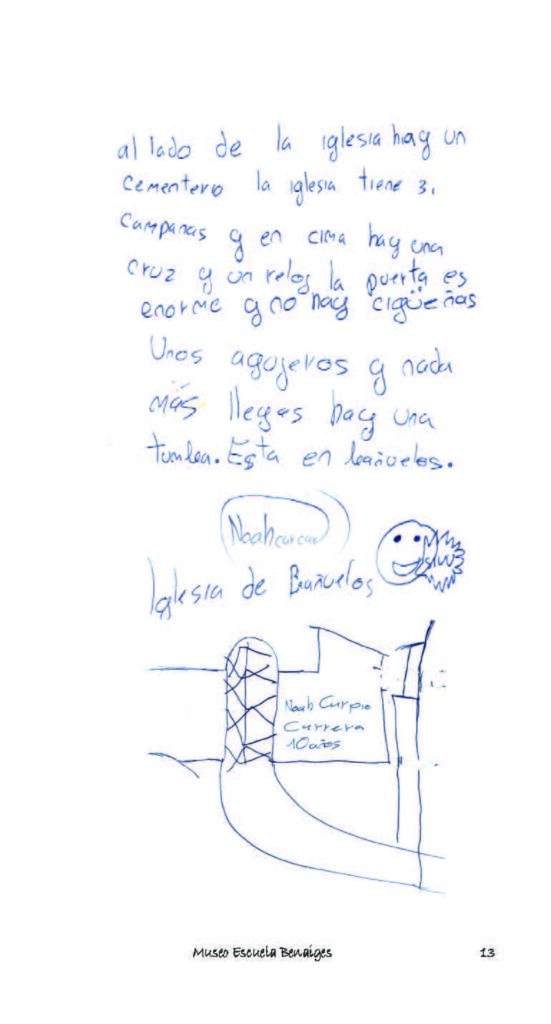 al lado de la iglesia hay un
cementero la iglesia tiene 3,
campanas y en cima hay una
cruz y un reloj la puerta es
enorme y no hay cigüeñas
Unos agujeros y nada
más llegas hay una
tumba. Esta en bañuelos.
Noah
Iglesia de Bañuelos
Noah Curpio
Currera
10 años
Museo Escuela Benaiges 13